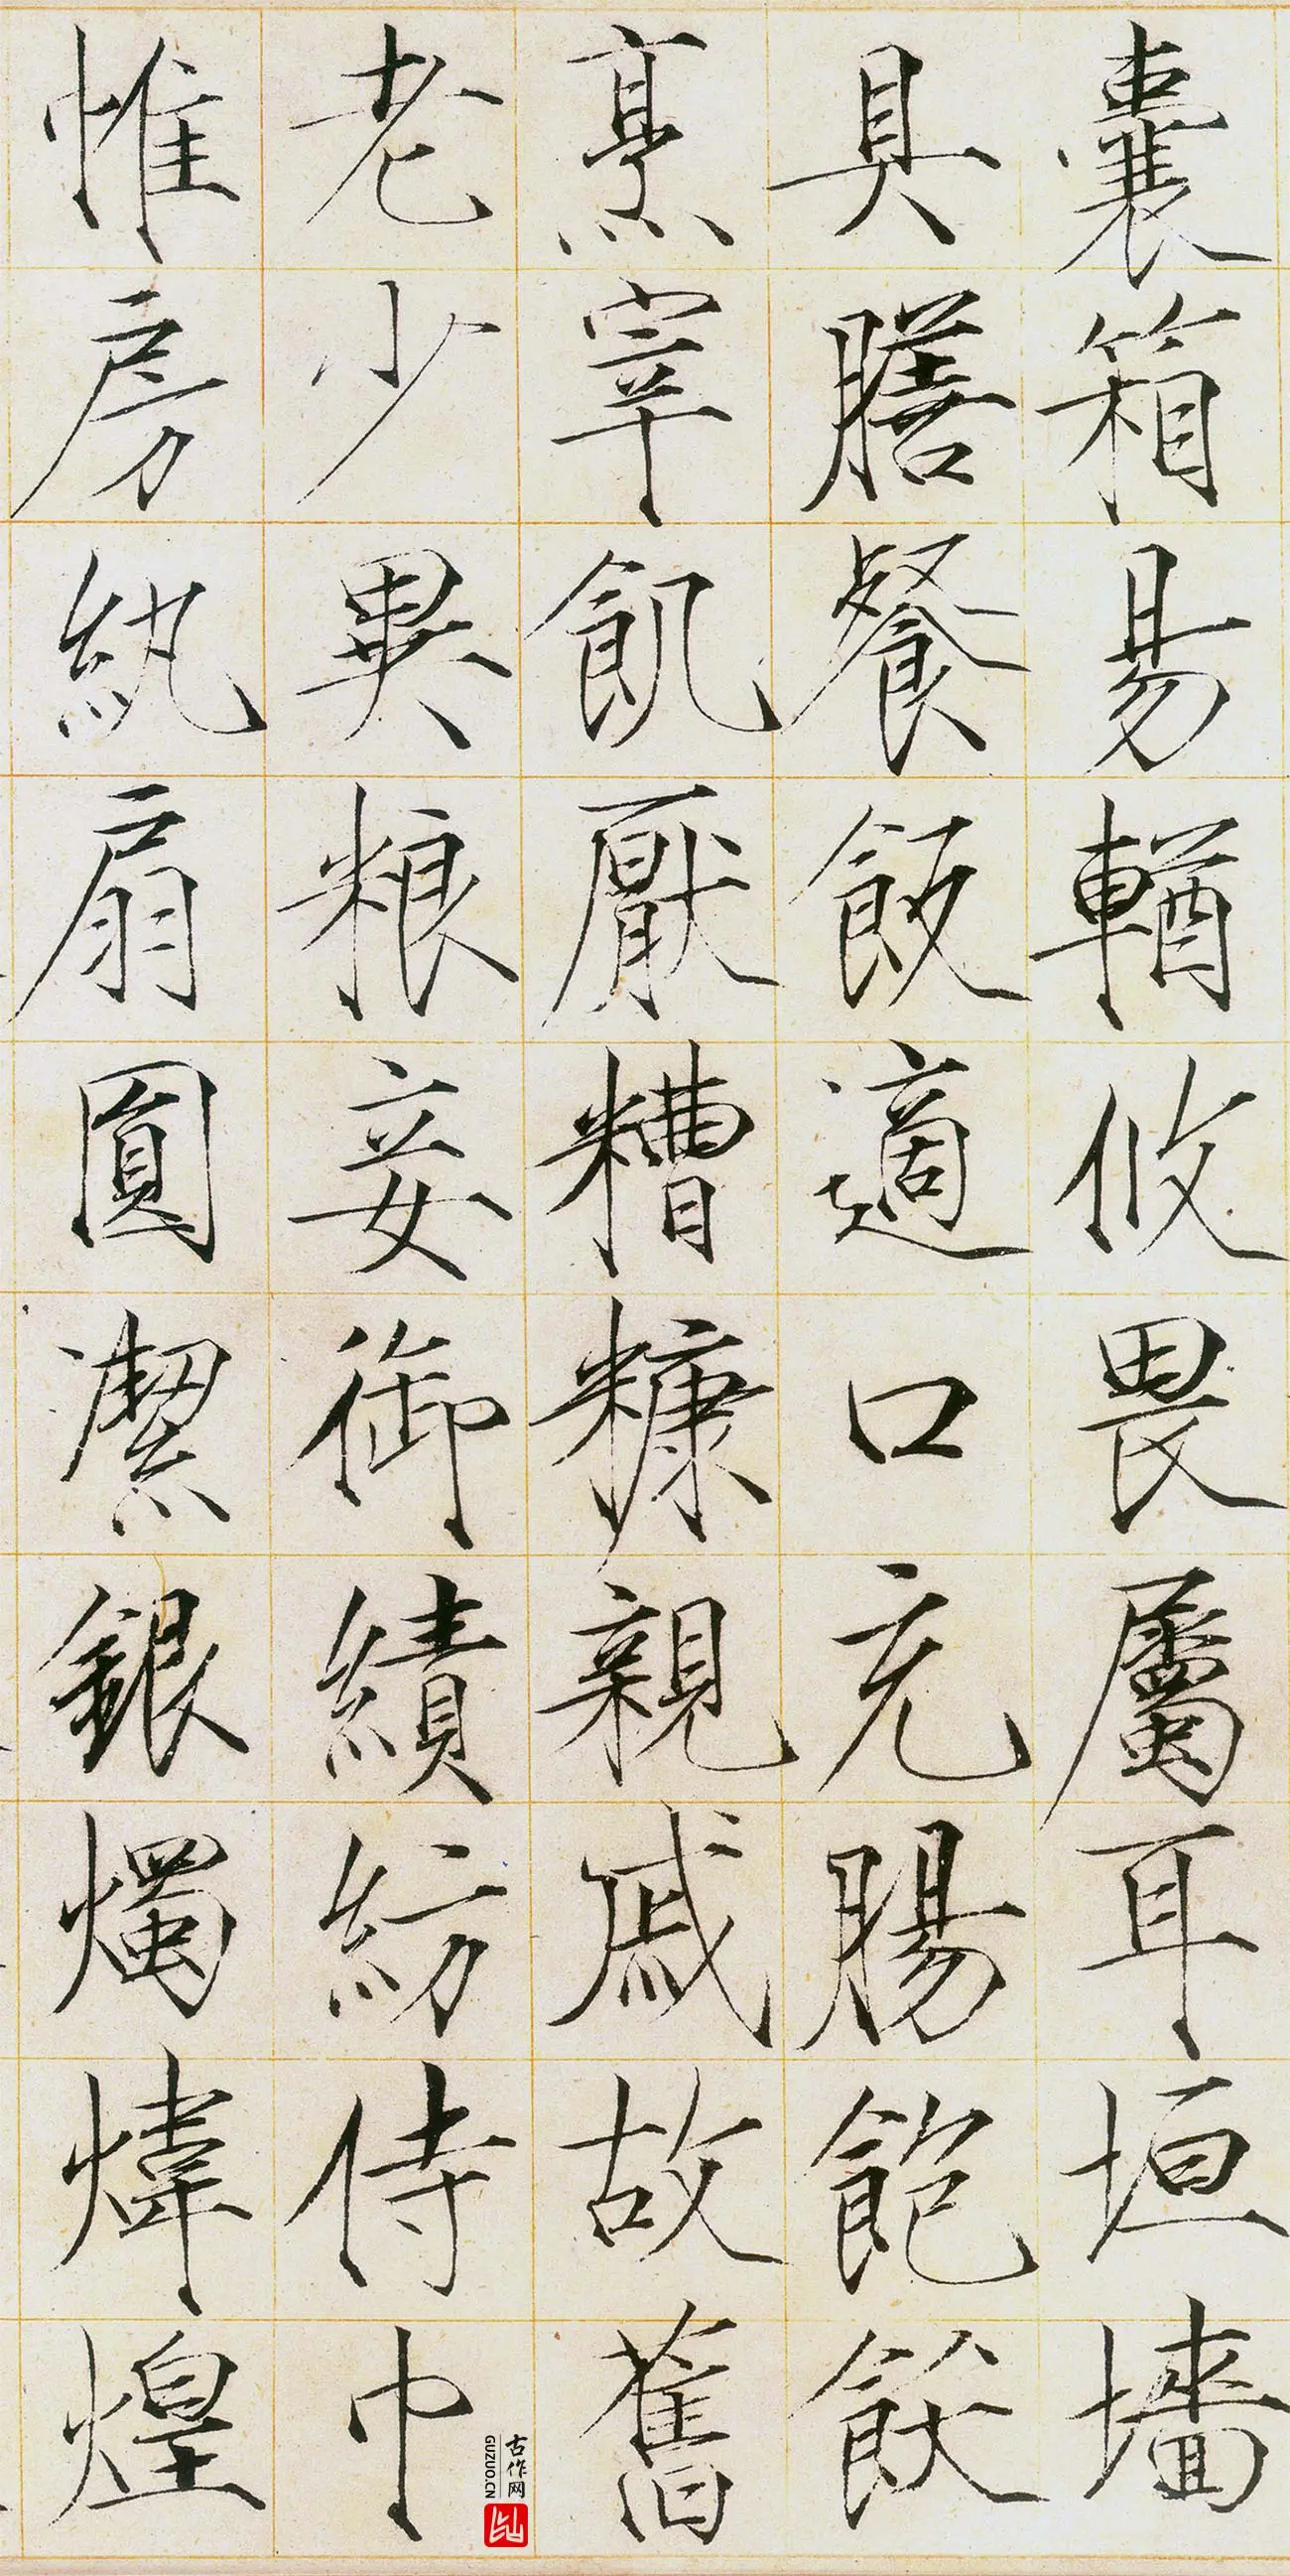 囊箱易輶攸畏屬耳垣墻
具膳餐飯適口充腸飽飫
烹宰飢厭糟糠親戚故舊
老少異粮妾御績紡侍巾
帷房紈扇圓潔銀燭煒煌
古作网
GUZUO.CN